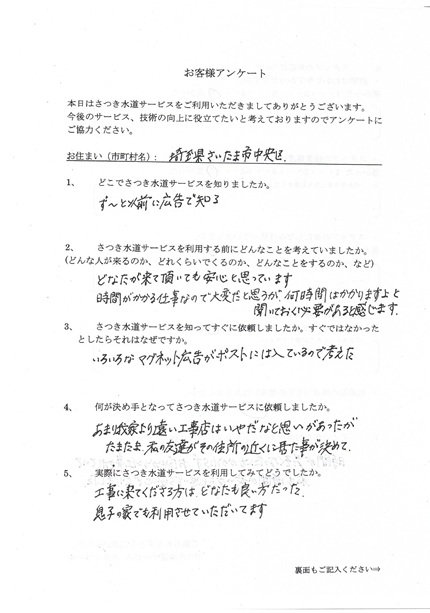 お客様アンケート
本日はさつき水道サービスをご利用いただきましてありがとうございます。
今後のサービス、技術の向上に役立てたいと考えておりますのでアンケートに
ご協力ください。
お住まい（市町村名）： 埼玉県さいたま市中央区
1、 どこでさつき水道サービスを知りましたか。
ず〜と以前に広告で知る
2、 さつき水道サービスを利用する前にどんなことを考えていましたか。
(どんな人が来るのか、どれくらいでくるのか、どんなことをするのか、など)
どなたが来て頂いても安心と思っています
時間がかかる仕事なので大変だと思うが、何時間はかかりますよと
聞いておく必要があると感じます.
3、 さつき水道サービスを知ってすぐに依頼しましたか。すぐではなかった
としたらそれはなぜですか。
いろいろなマグネット広告がポストには入ているので考えた
4、 何が決め手となってさつき水道サービスに依頼しましたか。
あまり我家より遠い工事店はいやだなと思いがあったが
たまたま、私の友達がその住所の近くに居た事が決めて.
5、 実際にさつき水道サービスを利用してみてどうでしたか。
工事に来てくださる方は、どなたも良い方だった.
息子の家でも利用させていただいてます
裏面もご記入ください⇒